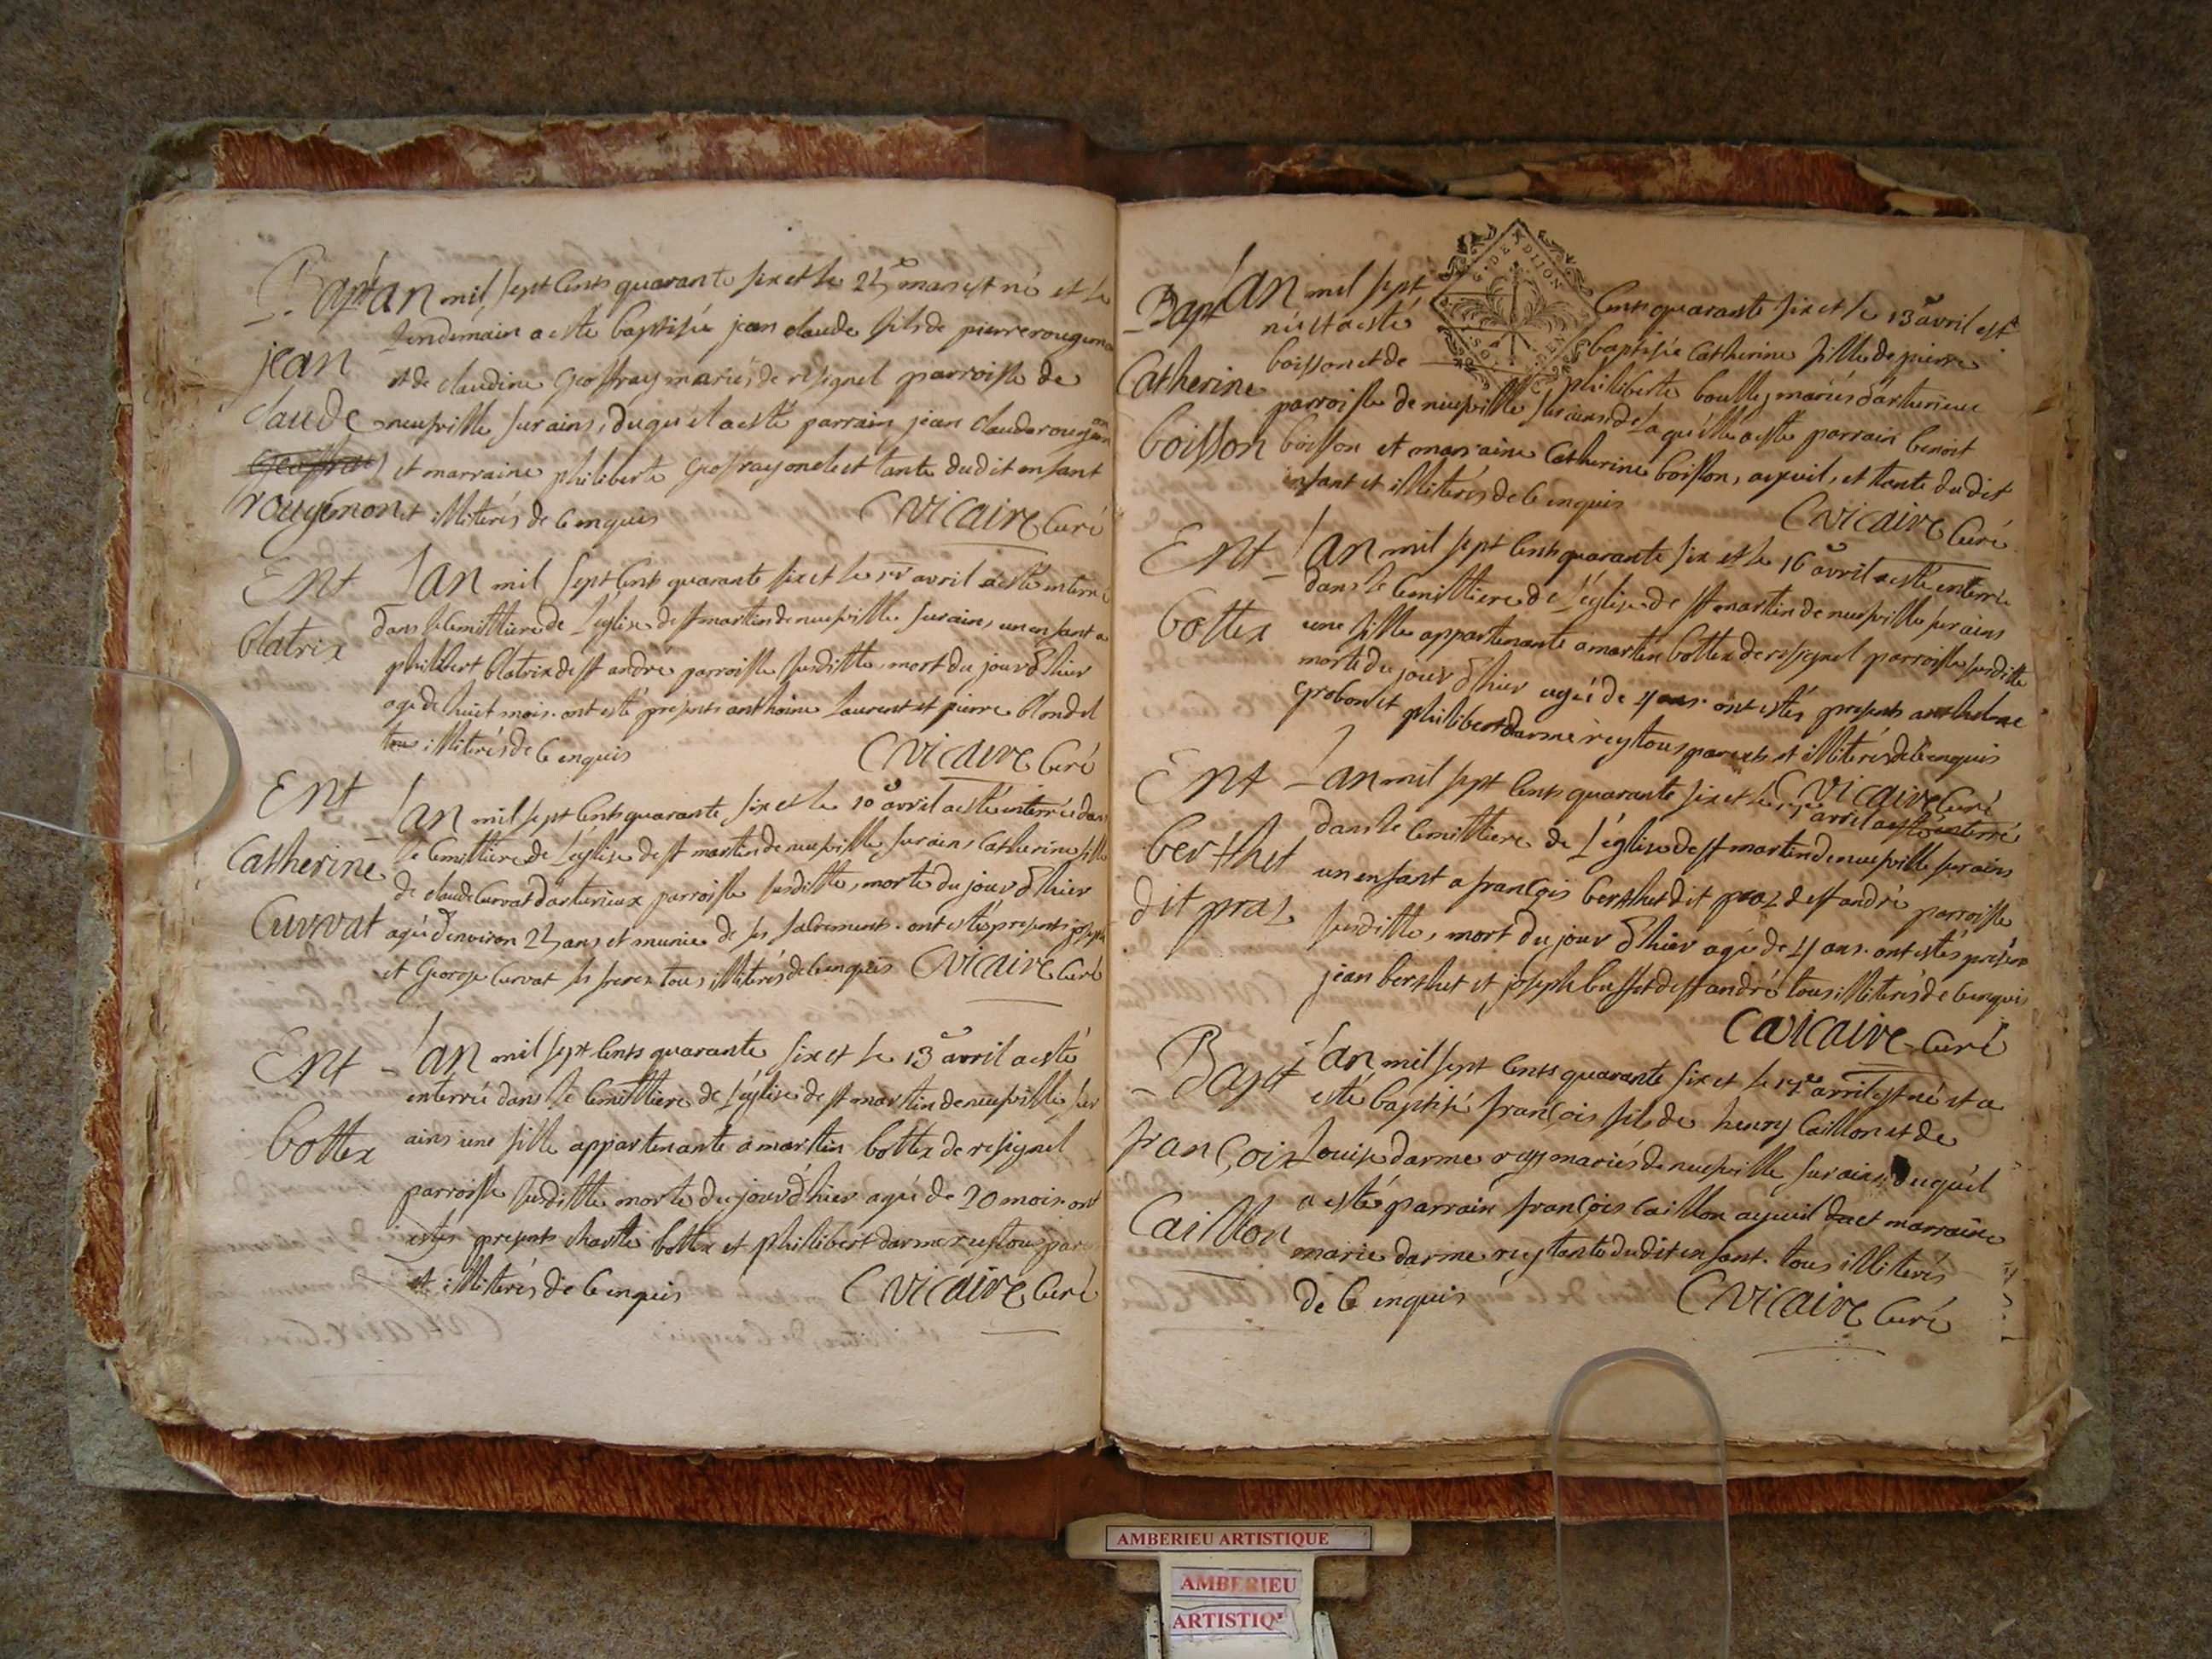 Bapt
jean
claude
rougemon
L'an mil sept cents quarante six et le 25e mars est né et le
lendemain a esté baptisé jean claude fils de pierre rougemon
et de claudine Geoffray mariés de resignel parroisse de
neufville sur ains, duquel a esté parrain jean claude rougemon
et marraine philiberte Geoffray oncle et tante dudit enfant
et illiterés de ce enquis CVicaire Curé
Ent
blatrix
L'an mil sept cents quarante six et le avril a esté enterré
dans le cemittiere de L'église de st martin de neufville sur ains, un enfant a
philibert blatrix de st andré parroisse susditte, mort du jour d'hier
agé de huit mois. ont esté présents anthoine Laurent et pierre blondel
tous illiterés de ce enquis CVicaire Curé
Ent
Catherine
Curvat
L'an mil sept cents quarante six et le 10e avril a esté enterrée dans
le cemittiere de L'église de st martin de neufville sur ains Catherine fille
de claude Curvat d'arturieux parroisse susditte, morte du jour d'hier
agée d'environ 25 ans et munie de ses sacrements. ont estés présents joseph
et George Curvat ses freres tous illiterés de ce enquis CVicaire Curé
Ent
bottex
L'an mil sept cents quarante six et le 13e avril a esté
enterrée dans le cemittiere de L'église de st martin de neufville sur
ains une fille appartenante a martin bottex de resignel
parroisse susditte morte du jour d'hier agée de 20 mois. ont
estés présents bottex et philibert darmerey tous parens
et illiterés de ce enquis CVicaire Curé
G. DE DIJON
Bapt
Catherine
boisson
L'an mil sept cents quarante six et le 13e avril est
née et a esté baptisée Catherine fille de pierre
boisson et de philiberte boulley mariés d'arturieux
parroisse de neufville sur ains, de laquelle a esté parrain benoit
boisson et marraine Catherine boisson, ayeuil, et tante dudit
enfant et illiterés de ce enquis
CVicaire Curé
Ent
bottex
L'an mil sept cents quarante six et le 16e avril a esté enterrée
dans le cemittiere de L'église de st martin de neufville sur ains
une fille appartenante a martin bottex de resignel parroisse susditte
morte du jour d'hier agée de 4 ans. ont estés présents anthelme
grobon et philibert darmerey tous parents et illiterés de ce enquis
CVicaire Curé
Ent
berthet
dit praz
L'an mil sept cents quarante six et le avril a esté enterré
dans le cemittiere de L'église de st martin de neufville sur ains
un enfant a françois berthet dit praz de st andré parroisse
susditte, mort du jour d'hier agé de 4 ans. ont estés présens
jean berthet et joseph buffet de st andré tous illiterés de ce enquis
CVicaire Curé
Bapt
françois
Caillon
L'an mil sept cents quarante six et le 17e avril est né et a
esté baptisé françois fils de henry Caillon et de
Louise darmerey mariés de neufville sur ains, duquel
a esté parrain françois Caillon ayeuil et marraine
marie darmerey tante dudit enfant. tous illiterés
de ce enquis CVicaire Curé
AMBERIEU ARTISTIQUE
AMBERIEU
ARTISTIQ